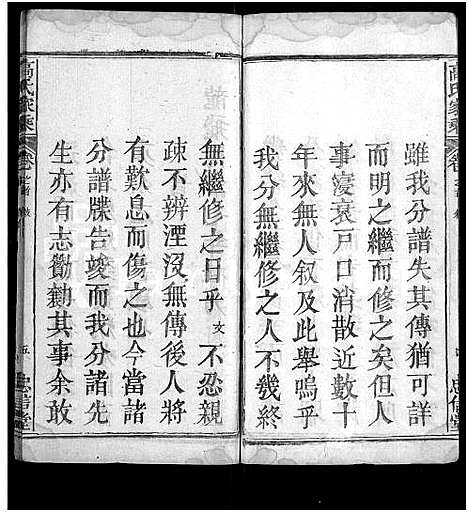 高氏家乘
雖我分譜失其傳猶可詳
而明之繼而修之矣但人
事寖衰戸口消散近數十
年來無人叙及此舉嗚乎
我分無繼修之人不幾終
無繼修之日乎 文 不忍親
疎不辨湮没無傳後人將
有歎息而傷之也今當諸
分譜牒告竣而我分諸先
生亦有志勷勷其事余敢
高氏家乘
卷
五
忠信堂